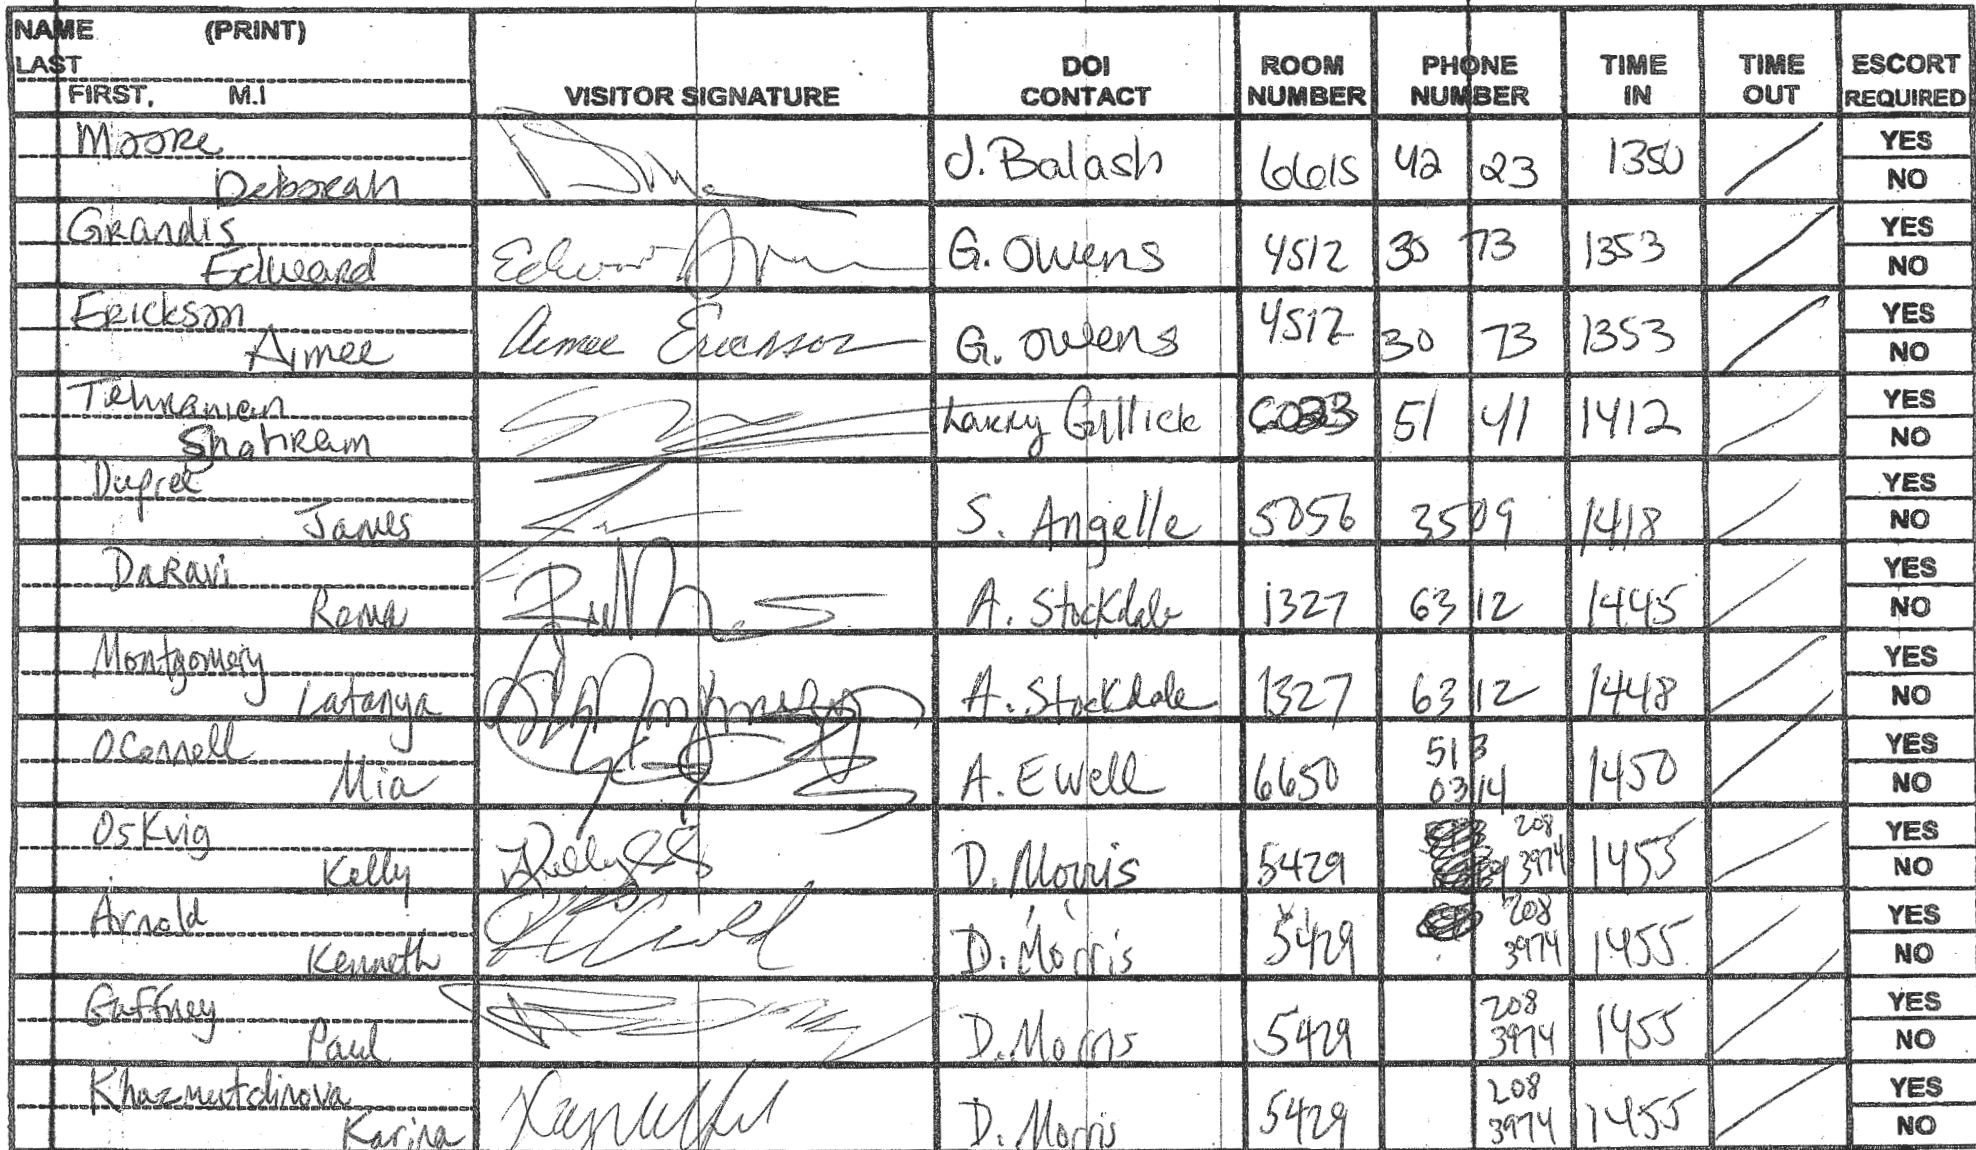 NAME (PRINT)
LAST
FIRST, M.I
VISITOR SIGNATURE
DOI CONTACT
ROOM NUMBER
PHONE NUMBER
TIME IN
TIME OUT
ESCORT REQUIRED
Moore
Deborah
J. Balash 6615 42 23 1350
YES
NO
Grandis
Edward
G. Owens 4512 30 73 1353
YES
NO
Erickson
Aimee
Aimee Erickson G. Owens 4512 30 73 1353
YES
NO
Tehranian
Shahram
Larry Gillick 51 41 1412
YES
NO
James
S. Angelle 5056 3509 1418
YES
NO
Daravi
Roma
A. Stockdale 1327 63 12 1445
YES
NO
Montgomery
Latanya
A. Stockdale 1327 63 12 1448
YES
NO
OConnell
Mia
A. Ewell 6650 513 0314 1450
YES
NO
Oskvig
Kelly
D. Morris 5429 208 3974 1455
YES
NO
Arnold
Kenneth
D. Morris 5429 208 3974 1455
YES
NO
Gaffney
Paul
D. Morris 5429 208 3974 1455
YES
NO
Khazmutdinova
Karina
D. Morris 5429 208 3974 1455
YES
NO